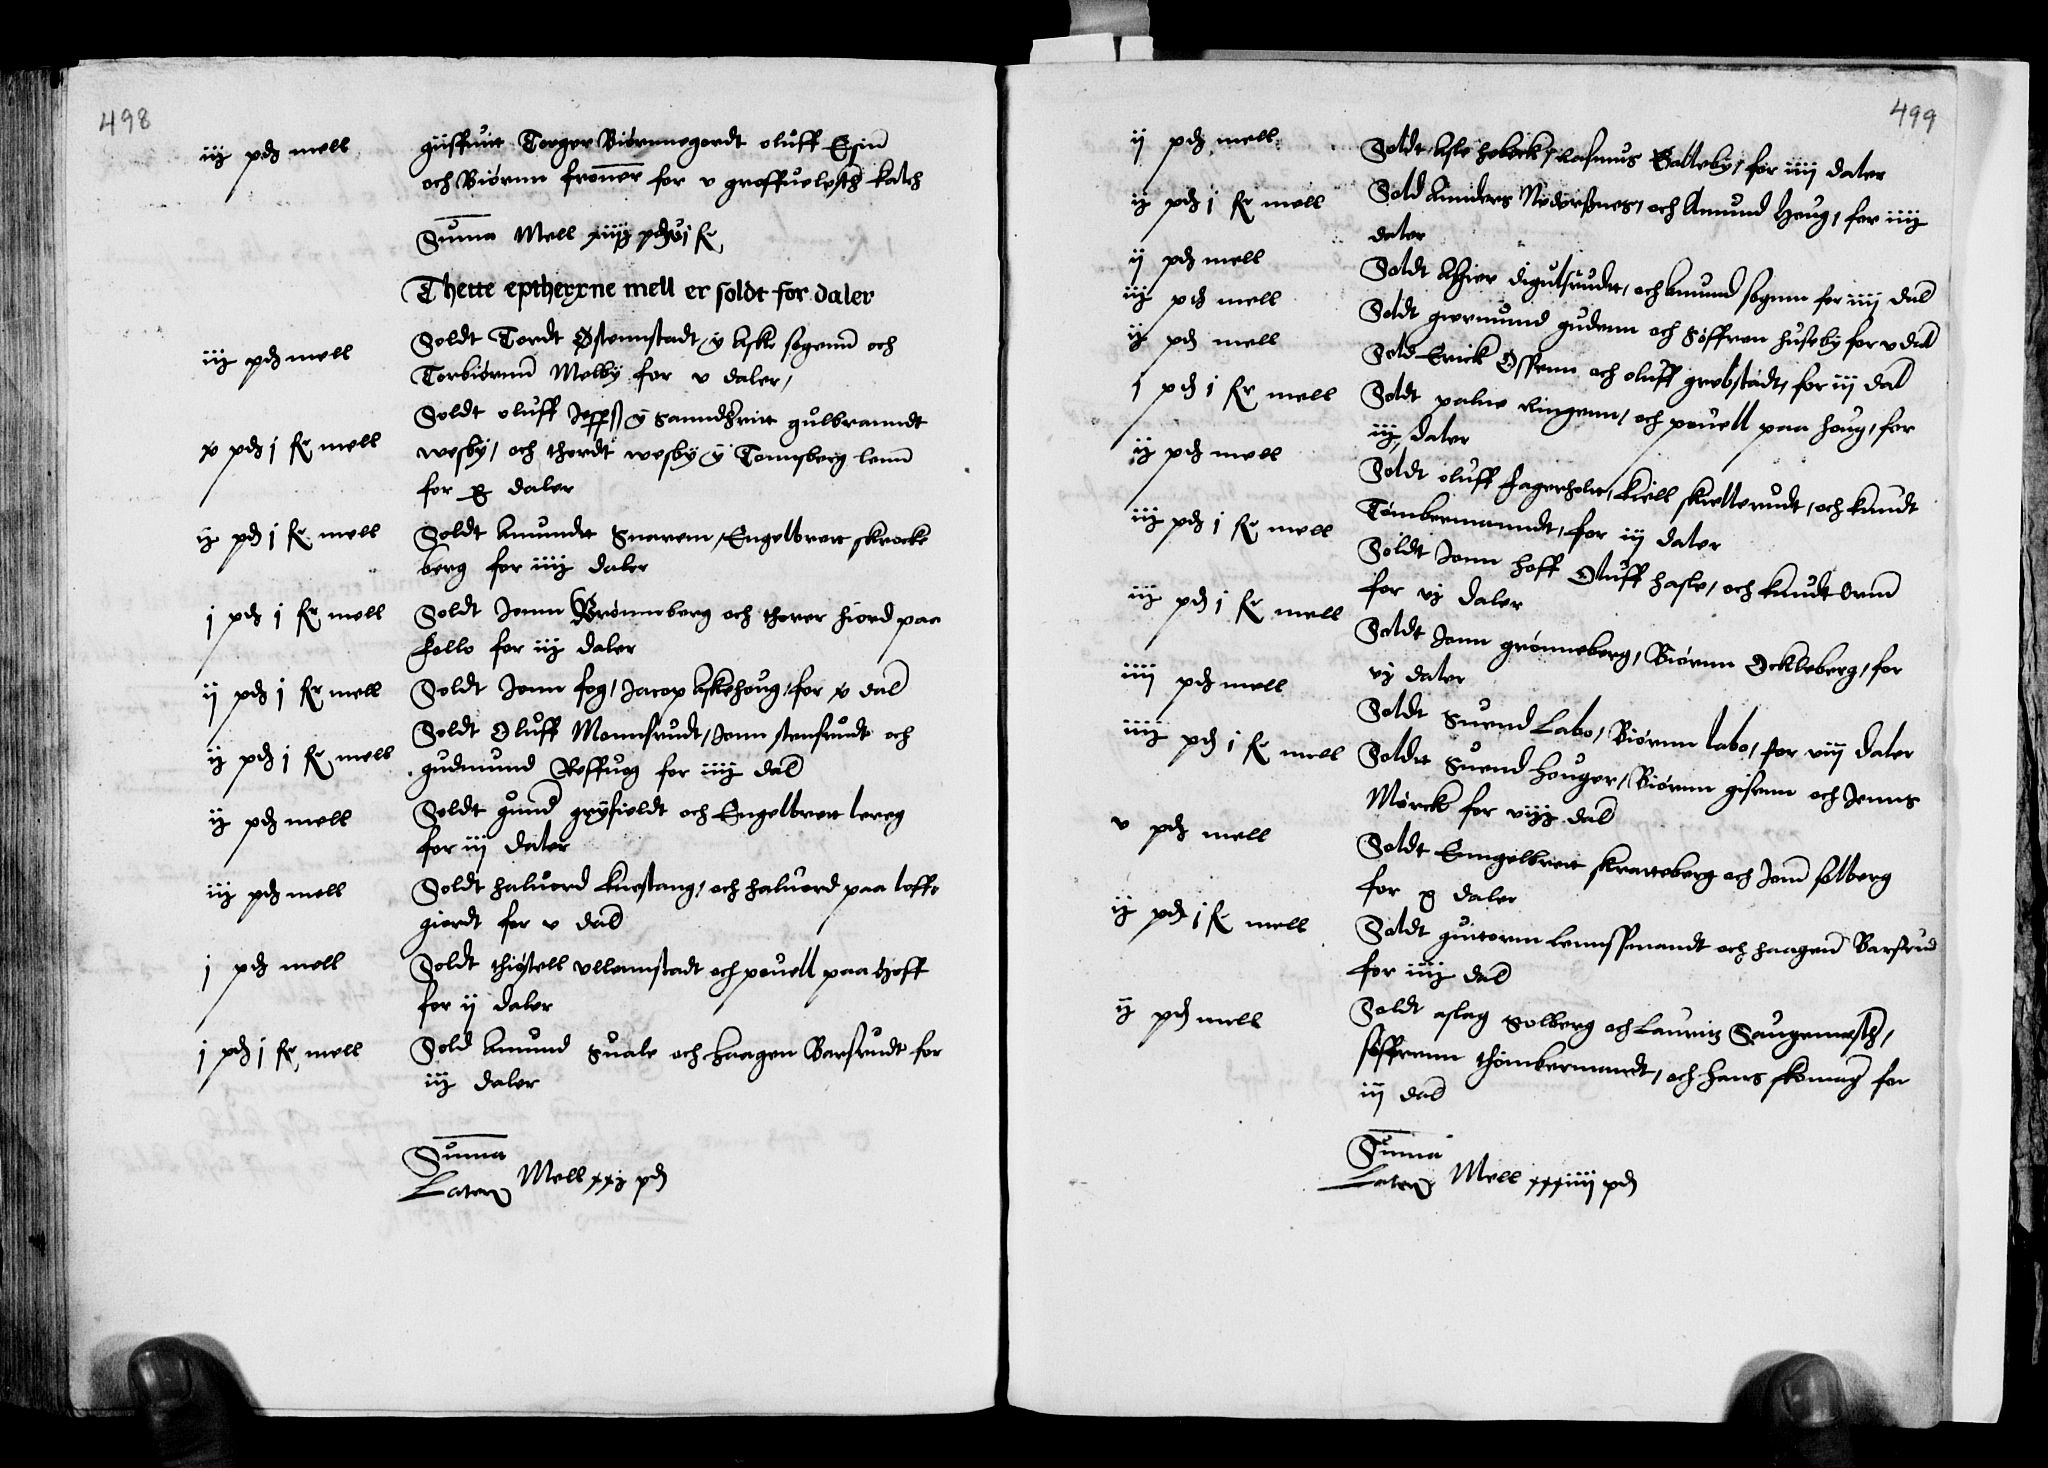 498
iij pdʒ mell
giiffuitt Torger Biørnnegordt oluff Esju̅
och Biørnn froner for v groffuelesth kalch
Suma Mell xiiij pdʒ j fr
Thette eptherxne mell er soldt for daler
iij pdʒ mell
Soldt Tordt Østennstadt y Aske sogenn och
Torbiørnn Melby for v daler,
v pdʒ j fr mell
Soldt oluff Jepss y Sanndʒ gulbranndt
wesby, och thordt wesby y Tonnsberg lenn
for x daler
ij pdʒ j fr mell
Soldt Amundt Snarem, Engelbrett skrocke
berg for iiij daler
j pdʒ j fr mell
Soldt Jonn Grønneberg och thorer hiord paa
follo for iij daler
ij pdʒ j fr mell
Soldt Jonn fog, Jacop Askehoug, for v dal
ij pdʒ j fr mell
Soldt Oluff Monnsrudt, Jonn stensrudt och
gudmund Roffuog for iiij dal
ij pdʒ mell
Soldt gund gryfieldt och Engelbrett lereg
for iij daler
iij pdʒ mell
Soldt haluord knestang, och haluord paa loffs
giordt for v dal
j pdʒ mell
Soldt thiøstell vllennstadt och pouell paa hoff
for ij daler
j pdʒ j fr mell
Sold Amund Suale och haagen Barsrudt for
iij daler
Suma
Later Mell xxj pdʒ
499
ij pdʒ mell
Soldt Asle hobeck, Rasmus Galleby, for iiij daler
ij pdʒ j fr mell
Sold Annders Nødørssnes, och Amund Houg, for iiij
daler
ij pdʒ mell
Soldt digulsrudt, och Amund sognn for iiij dal
iij pdʒ mell
Soldt giermund gudenn och Søffren huseby for v dal
ij pdʒ mell
Sold Erick Ossenn och oluff grobstadt, for iij dal
j pdʒ j fr mell
Soldt palne Ringenn, och pouell paa houg, for
iij, daler
ij pdʒ mell
Soldt oluff fagerholtt, kiell skretterudt, och knudt
Tømbermanndt, for iij daler
iij pdʒ j fr mell
Soldt Jonn hoff Oluff hasle, och knudt Orm
for vj daler
iij pdʒ j fr mell
Soldt Jonn grønneberg, Biørnn Ockleberg, for
vj daler
iiij pdʒ mell
Soldt Suend Labo, Biørnn labo, for viij daler
iiij pdʒ j fr mell
Soldtt Suend houger, Biørnn gisenn och Jenns
Mørck for viij dal
v pdʒ mell
Soldt Enngelbrett skratteberg och Jonn solberg
for x daler
ij pdʒ j fr mell
Soldt guttorm lennssmandt och haagenn Barsrud
for iiij dal
ij pdʒ mell
Soldt aslag Solberg och Lauritz Saugemesth,
søffrenn thømbermandt, och hans skomag for
iij dal
Suma
Later Mell xxxiiij pdʒ